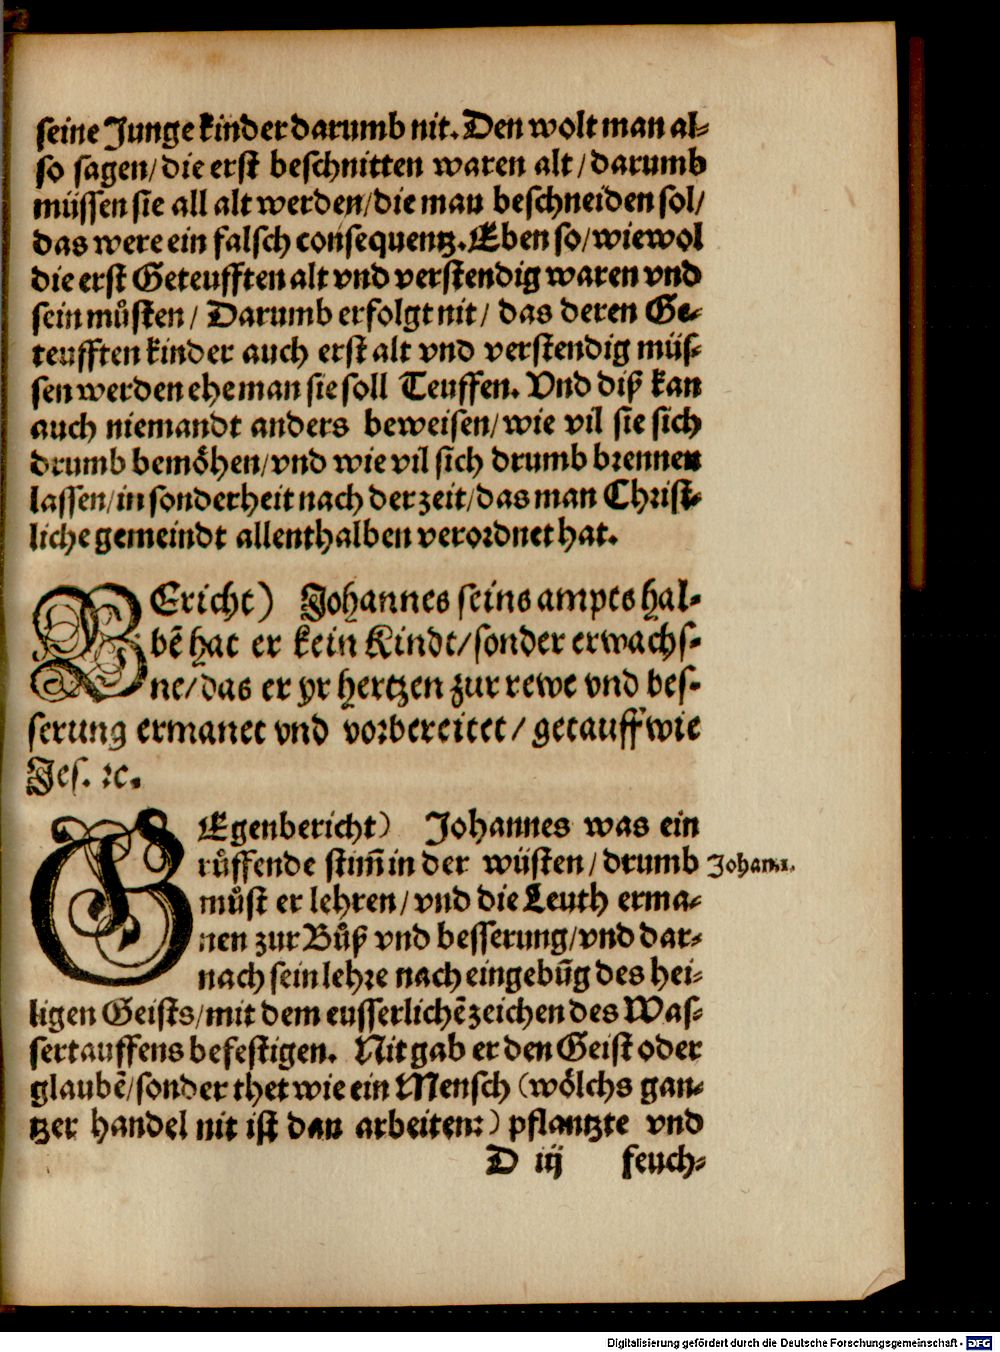 seine Junge kinder darumb nit. Den wolt man al⸗
so sagen/ die erst beschnitten waren alt / darumb
müssen sie all alt werden/ die man beschneiden sol/
das were ein falsch consequentz. Eben so/ wiewol
die erst Geteufften alt vnd verstendig waren vnd
sein můsten / Darumb erfolgt nit / das deren Ge⸗
teufften kinder auch erst alt vnd verstendig müs⸗
sen werden ehe man sie soll Teuffen. Vnd diß kan
auch niemandt anders beweisen/ wie vil sie sich
drumb bemöhen/ vnd wie vil sich drumb brennen
lassen/ in sonderheit nach der zeit/ das man Christ⸗
liche gemeindt allenthalben verordnet hat.
BEricht) Johannes seins ampts hal⸗
bē hat er kein Kindt/ sonder erwachs⸗
ne/ das er yr hertzen zur rewe vnd bes⸗
serung ermanet vnd vorbereitet / getaufft wie
Jes. ꝛc.
GEgenbericht) Johannes was ein
růffende stim̄ in der wüsten / drumb
můst er lehren/ vnd die Leuth erma⸗
nen zur Bůß vnd besserung/ vnd dar⸗
nach sein lehre nach eingebūg des hei⸗
ligen Geists/ mit dem eusserlichē zeichen des Was⸗
sertauffens befestigen. Nit gab er den Geist oder
glaubē/ sonder thet wie ein Mensch (wölchs gan⸗
tzer handel nit ist dan arbeiten:) pflantzte vnd
D iij feuch⸗
Johan.1.
Digitalisierung gefördert durch die Deutsche Forschungsgemeinschaft - DFG